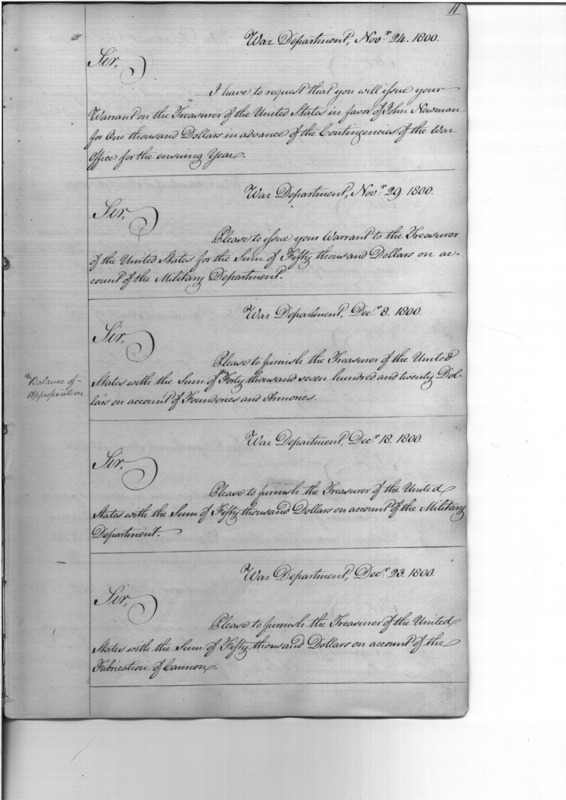 11
War Department, Novr. 24. 1800.
Sir,
I have to request that you will issue your
Warrant on the Treasurer of the United States in favor of John Newman
for One thousand Dollars in advance of the Contingencies of the War
Office for the ensuing Year.
War Department, Novr. 29. 1800.
Sir,
Please to issue your Warrant to the Treasurer
of the United States for the Sum of Fifty thousand Dollars on ac-
count of the Military Department.
War Department, Decr. 8. 1800.
Sir,
Please to furnish the Treasurer of the United
Balance of
Appropriation
States with the Sum of Forty thousand seven hundred and twenty Dol-
lars on account of Founderies and Armories.
War Department, Decr. 18. 1800.
Sir,
Please to furnish the Treasurer of the United
States with the Sum of Fifty thousand Dollars on account of the Military
Department.
War Department, Decr. 23. 1800.
Sir,
Please to furnish the Treasurer of the United
States with the Sum of Fifty thousand Dollars on account of the
Fabrication of Cannon.